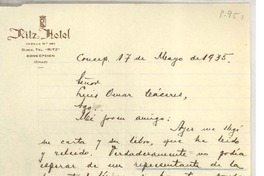 Ritz Hotel
DIREC. TEL. "RITZ"
CONCEPCION
(CHILE)
Concep. 17 de Mayo de 1935.
Señor
Luis Omar Cáceres,
Mi joven amigo:
Ayer me llegó
su carta y su libro, que he leído
y releído. Verdaderamente no podía
esperar de un representante de la